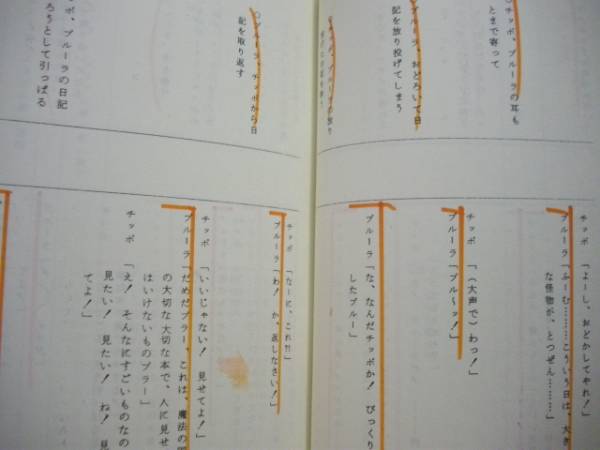 〇チッポ、ブルーラの耳も
とまで寄って
〇ブルーラ、おどろいて日
記を放り投げてしまう
〇ブルーラ、チッポから日
記を取り返す
ッポ、ブルーラの日記
ろうとして引っぱる
チッポ 「よーし、おどかしてやれ！」
ブルーラ「ふーむ………こういう日は、大き
な怪物が、とつぜん………」
チッポ 「（大声で）わっ！」
ブルーラ「ブル〜ッ！」
ブルーラ「な、なんだチッポか！ びっくり
したブルー」
チッポ 「なーに、これ?!」
ブルーラ「わ！ か、返しなさい！」
チッポ 「いいじゃない！ 見せてよ！」
ブルーラ「だめだブラー、これは、魔法の
の大切な大切な本で、人に見せ
はいけないものブラー」
チッポ 「え！ そんなにすごいものなの
見たい！ 見たい！ ね！ 見
てよ！」